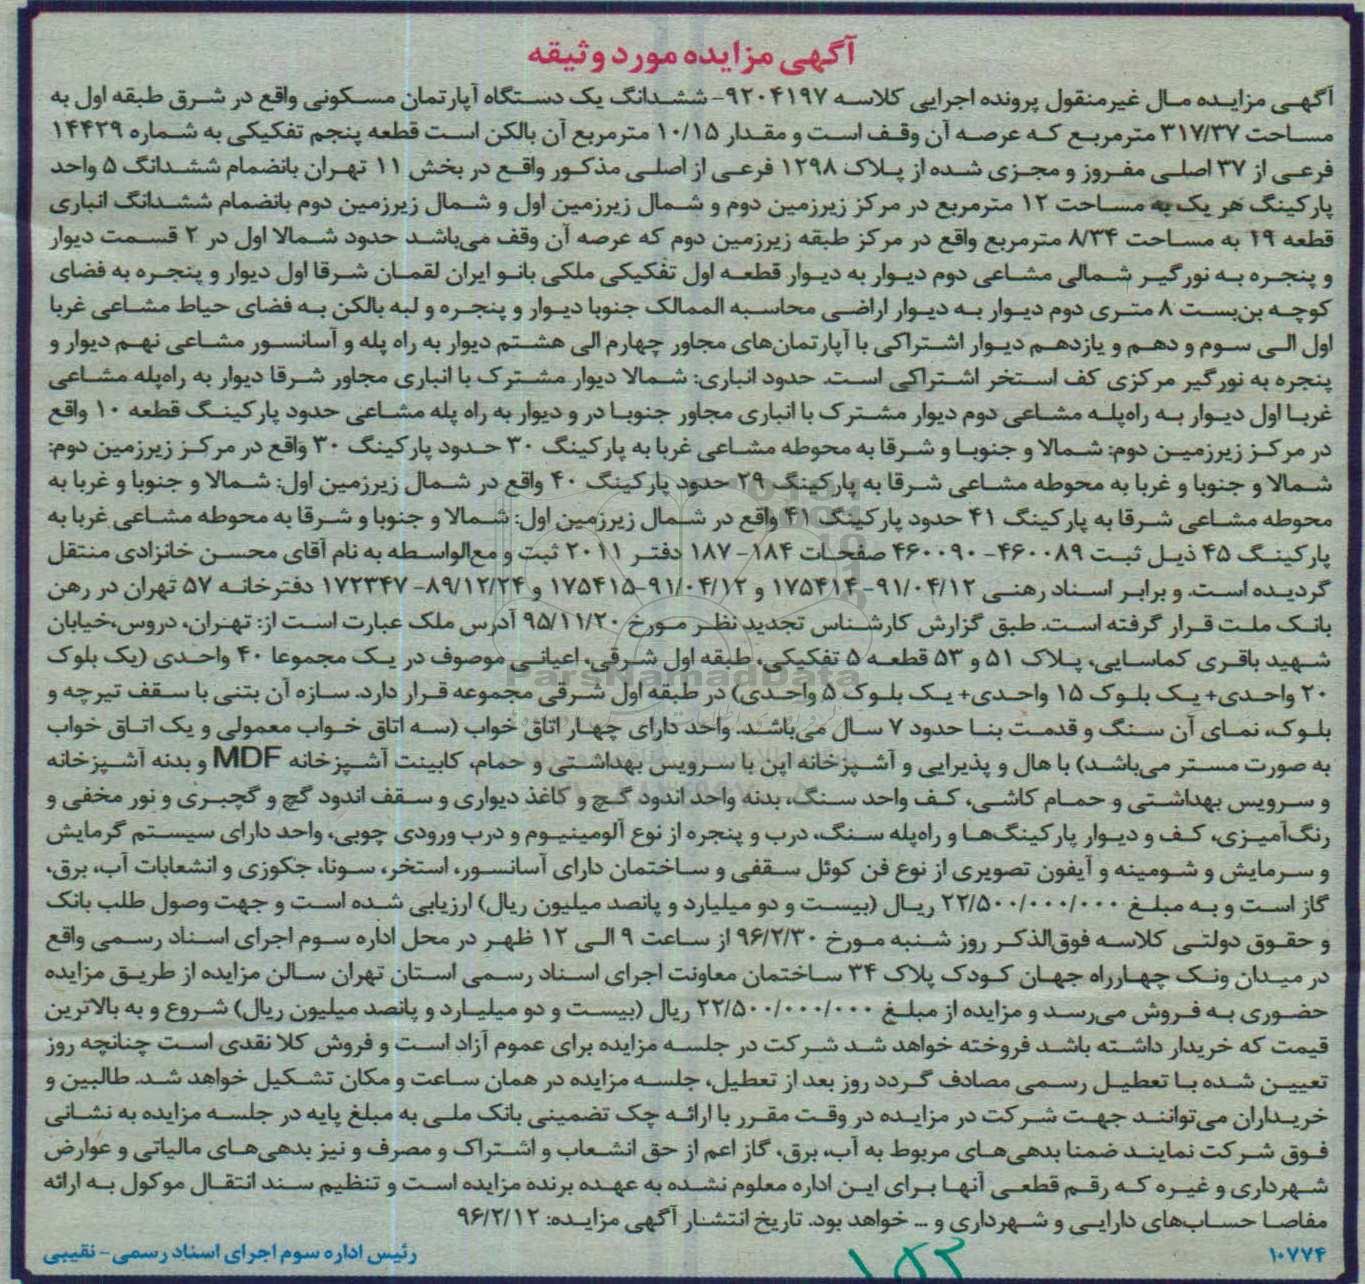 آگهی مزایده مورد وثیقه
آگهی مزایده مال غیرمنقول پرونده اجرایی کلاسه ۹۲۰۴۱۹۷- ششدانگ یک دستگاه آپارتمان مسکونی واقع در شرق طبقه اول به
مساحت ۳۱۷/۳۷ مترمربع که عرصه آن وقف است و مقدار ۱۰/۱۵ مترمربع آن بالکن است قطعه پنجم تفکیکی به شماره ۱۴۴۲۹
فرعی از ۳۷ اصلی مفروز و مجزی شده از پلاک ۱۲۹۸ فرعی از اصلی مذکور واقع در بخش ۱۱ تهران بانضمام ششدانگ ۵ واحد
پارکینگ هر یک به مساحت ۱۲ مترمربع در مرکز زیرزمین دوم و شمال زیرزمین اول و شمال زیرزمین دوم بانضمام ششدانگ انباری
قطعه ۱۹ به مساحت ۸/۳۴ مترمربع واقع در مرکز طبقه زیرزمین دوم که عرصه آن وقف می‌باشد حدود شمالا اول در ۲ قسمت دیوار
و پنجره به نورگیر شمالی مشاعی دوم دیوار به دیوار قطعه اول تفکیکی ملکی بانو ایران لقمان شرقا اول دیوار و پنجره به فضای
کوچه بن‌بست ۸ متری دوم دیوار به دیوار اراضی محاسبه الممالک جنوبا دیوار و پنجره و لبه بالکن به فضای حیاط مشاعی غربا
اول الی سوم و دهم و یازدهم دیوار اشتراکی با آپارتمان‌های مجاور چهارم الی هشتم دیوار به راه پله و آسانسور مشاعی نهم دیوار و
پنجره به نورگیر مرکزی کف استخر اشتراکی است. حدود انباری: شمالا دیوار مشترک با انباری مجاور شرقا دیوار به راه‌پله مشاعی
غربا اول دیوار به راه‌پله مشاعی دوم دیوار مشترک با انباری مجاور جنوبا در و دیوار به راه پله مشاعی حدود پارکینگ قطعه ۱۰ واقع
در مرکز زیرزمین دوم: شمالا و جنوبا و شرقا به محوطه مشاعی غربا به پارکینگ ۳۰ حدود پارکینگ ۳۰ واقع در مرکز زیرزمین دوم:
شمالا و جنوبا و غربا به محوطه مشاعی شرقا به پارکینگ ۲۹ حدود پارکینگ ۴۰ واقع در شمال زیرزمین اول: شمالا و جنوبا و غربا به
محوطه مشاعی شرقا به پارکینگ ۴۱ حدود پارکینگ ۴۱ واقع در شمال زیرزمین اول: شمالا و جنوبا و شرقا به محوطه مشاعی غربا به
پارکینگ ۴۵ ذیل ثبت ۴۶۰۰۸۹- ۴۶۰۰۹۰ صفحات ۱۸۴- ۱۸۷ دفتر ۲۰۱۱ ثبت و مع‌الواسطه به نام آقای محسن خانزادی منتقل
گردیده است. و برابر اسناد رهنی ۹۱/۰۴/۱۲- ۱۷۵۴۱۴ و ۹۱/۰۴/۱۲-۱۷۵۴۱۵ و ۸۹/۱۲/۲۴- ۱۷۲۳۴۷ دفترخانه ۵۷ تهران در رهن
بانک ملت قرار گرفته است. طبق گزارش کارشناس تجدید نظر مورخ ۹۵/۱۱/۲۰ آدرس ملک عبارت است از: تهران، دروس،خیابان
شهید باقری کماسایی، پلاک ۵۱ و ۵۳ قطعه ۵ تفکیکی، طبقه اول شرقی، اعیانی موصوف در یک مجموعا ۴۰ واحدی (یک بلوک
۲۰ واحدی+ یک بلوک ۱۵ واحدی+ یک بلوک ۵ واحدی) در طبقه اول شرقی مجموعه قرار دارد. سازه آن بتنی با سقف تیرچه و
بلوک، نمای آن سنگ و قدمت بنا حدود ۷ سال می‌باشد. واحد دارای چهار اتاق خواب (سه اتاق خواب معمولی و یک اتاق خواب
به صورت مستر می‌باشد) با هال و پذیرایی و آشپزخانه اپن با سرویس بهداشتی و حمام، کابینت آشپزخانه MDF و بدنه آشپزخانه
و سرویس بهداشتی و حمام کاشی، کف واحد سنگ، بدنه واحد اندود گچ و کاغذ دیواری و سقف اندود گچ و گچبری و نور مخفی و
رنگ‌آمیزی، کف و دیوار پارکینگ‌ها و راه‌پله سنگ، درب و پنجره از نوع آلومینیوم و درب ورودی چوبی، واحد دارای سیستم گرمایش
و سرمایش و شومینه و آیفون تصویری از نوع فن کوئل سقفی و ساختمان دارای آسانسور، استخر، سونا، جکوزی و انشعابات آب، برق،
گاز است و به مبلغ ۲۲/۵۰۰/۰۰۰/۰۰۰ ریال (بیست و دو میلیارد و پانصد میلیون ریال) ارزیابی شده است و جهت وصول طلب بانک
و حقوق دولتی کلاسه فوق‌الذکر روز شنبه مورخ ۹۶/۲/۳۰ از ساعت ۹ الی ۱۲ ظهر در محل اداره سوم اجرای اسناد رسمی واقع
در میدان ونک چهارراه جهان کودک پلاک ۳۴ ساختمان معاونت اجرای اسناد رسمی استان تهران سالن مزایده از طریق مزایده
حضوری به فروش می‌رسد و مزایده از مبلغ ۲۲/۵۰۰/۰۰۰/۰۰۰ ریال (بیست و دو میلیارد و پانصد میلیون ریال) شروع و به بالاترین
قیمت که خریدار داشته باشد فروخته خواهد شد شرکت در جلسه مزایده برای عموم آزاد است و فروش کلا نقدی است چنانچه روز
تعیین شده با تعطیل رسمی مصادف گردد روز بعد از تعطیل، جلسه مزایده در همان ساعت و مکان تشکیل خواهد شد. طالبین و
خریداران می‌توانند جهت شرکت در مزایده در وقت مقرر با ارائه چک تضمینی بانک ملی به مبلغ پایه در جلسه مزایده به نشانی
فوق شرکت نمایند ضمنا بدهی‌های مربوط به آب، برق، گاز اعم از حق انشعاب و اشتراک و مصرف و نیز بدهی‌های مالیاتی و عوارض
شهرداری و غیره که رقم قطعی آنها برای این اداره معلوم نشده به عهده برنده مزایده است و تنظیم سند انتقال موکول به ارائه
مفاصا حساب‌های دارایی و شهرداری و ... خواهد بود. تاریخ انتشار آگهی مزایده: ۹۶/۲/۱۲
۱۰۷۷۴
رئیس اداره سوم اجرای اسناد رسمی- نقیبی
ParsNamadData